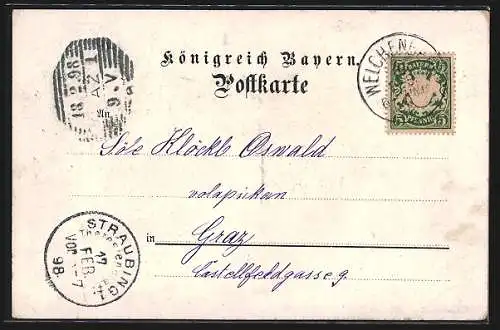 Königreich Bayern.
Postkarte
18 2 98
AZ 1
9 V
WELCHENB
BAYERN
5 PFENNIG 5
An
Söle Klöckl Oswald
volapükan
in Graz
Castellfeldgasse 9.
STRAUBING I
17
FEB.
98.